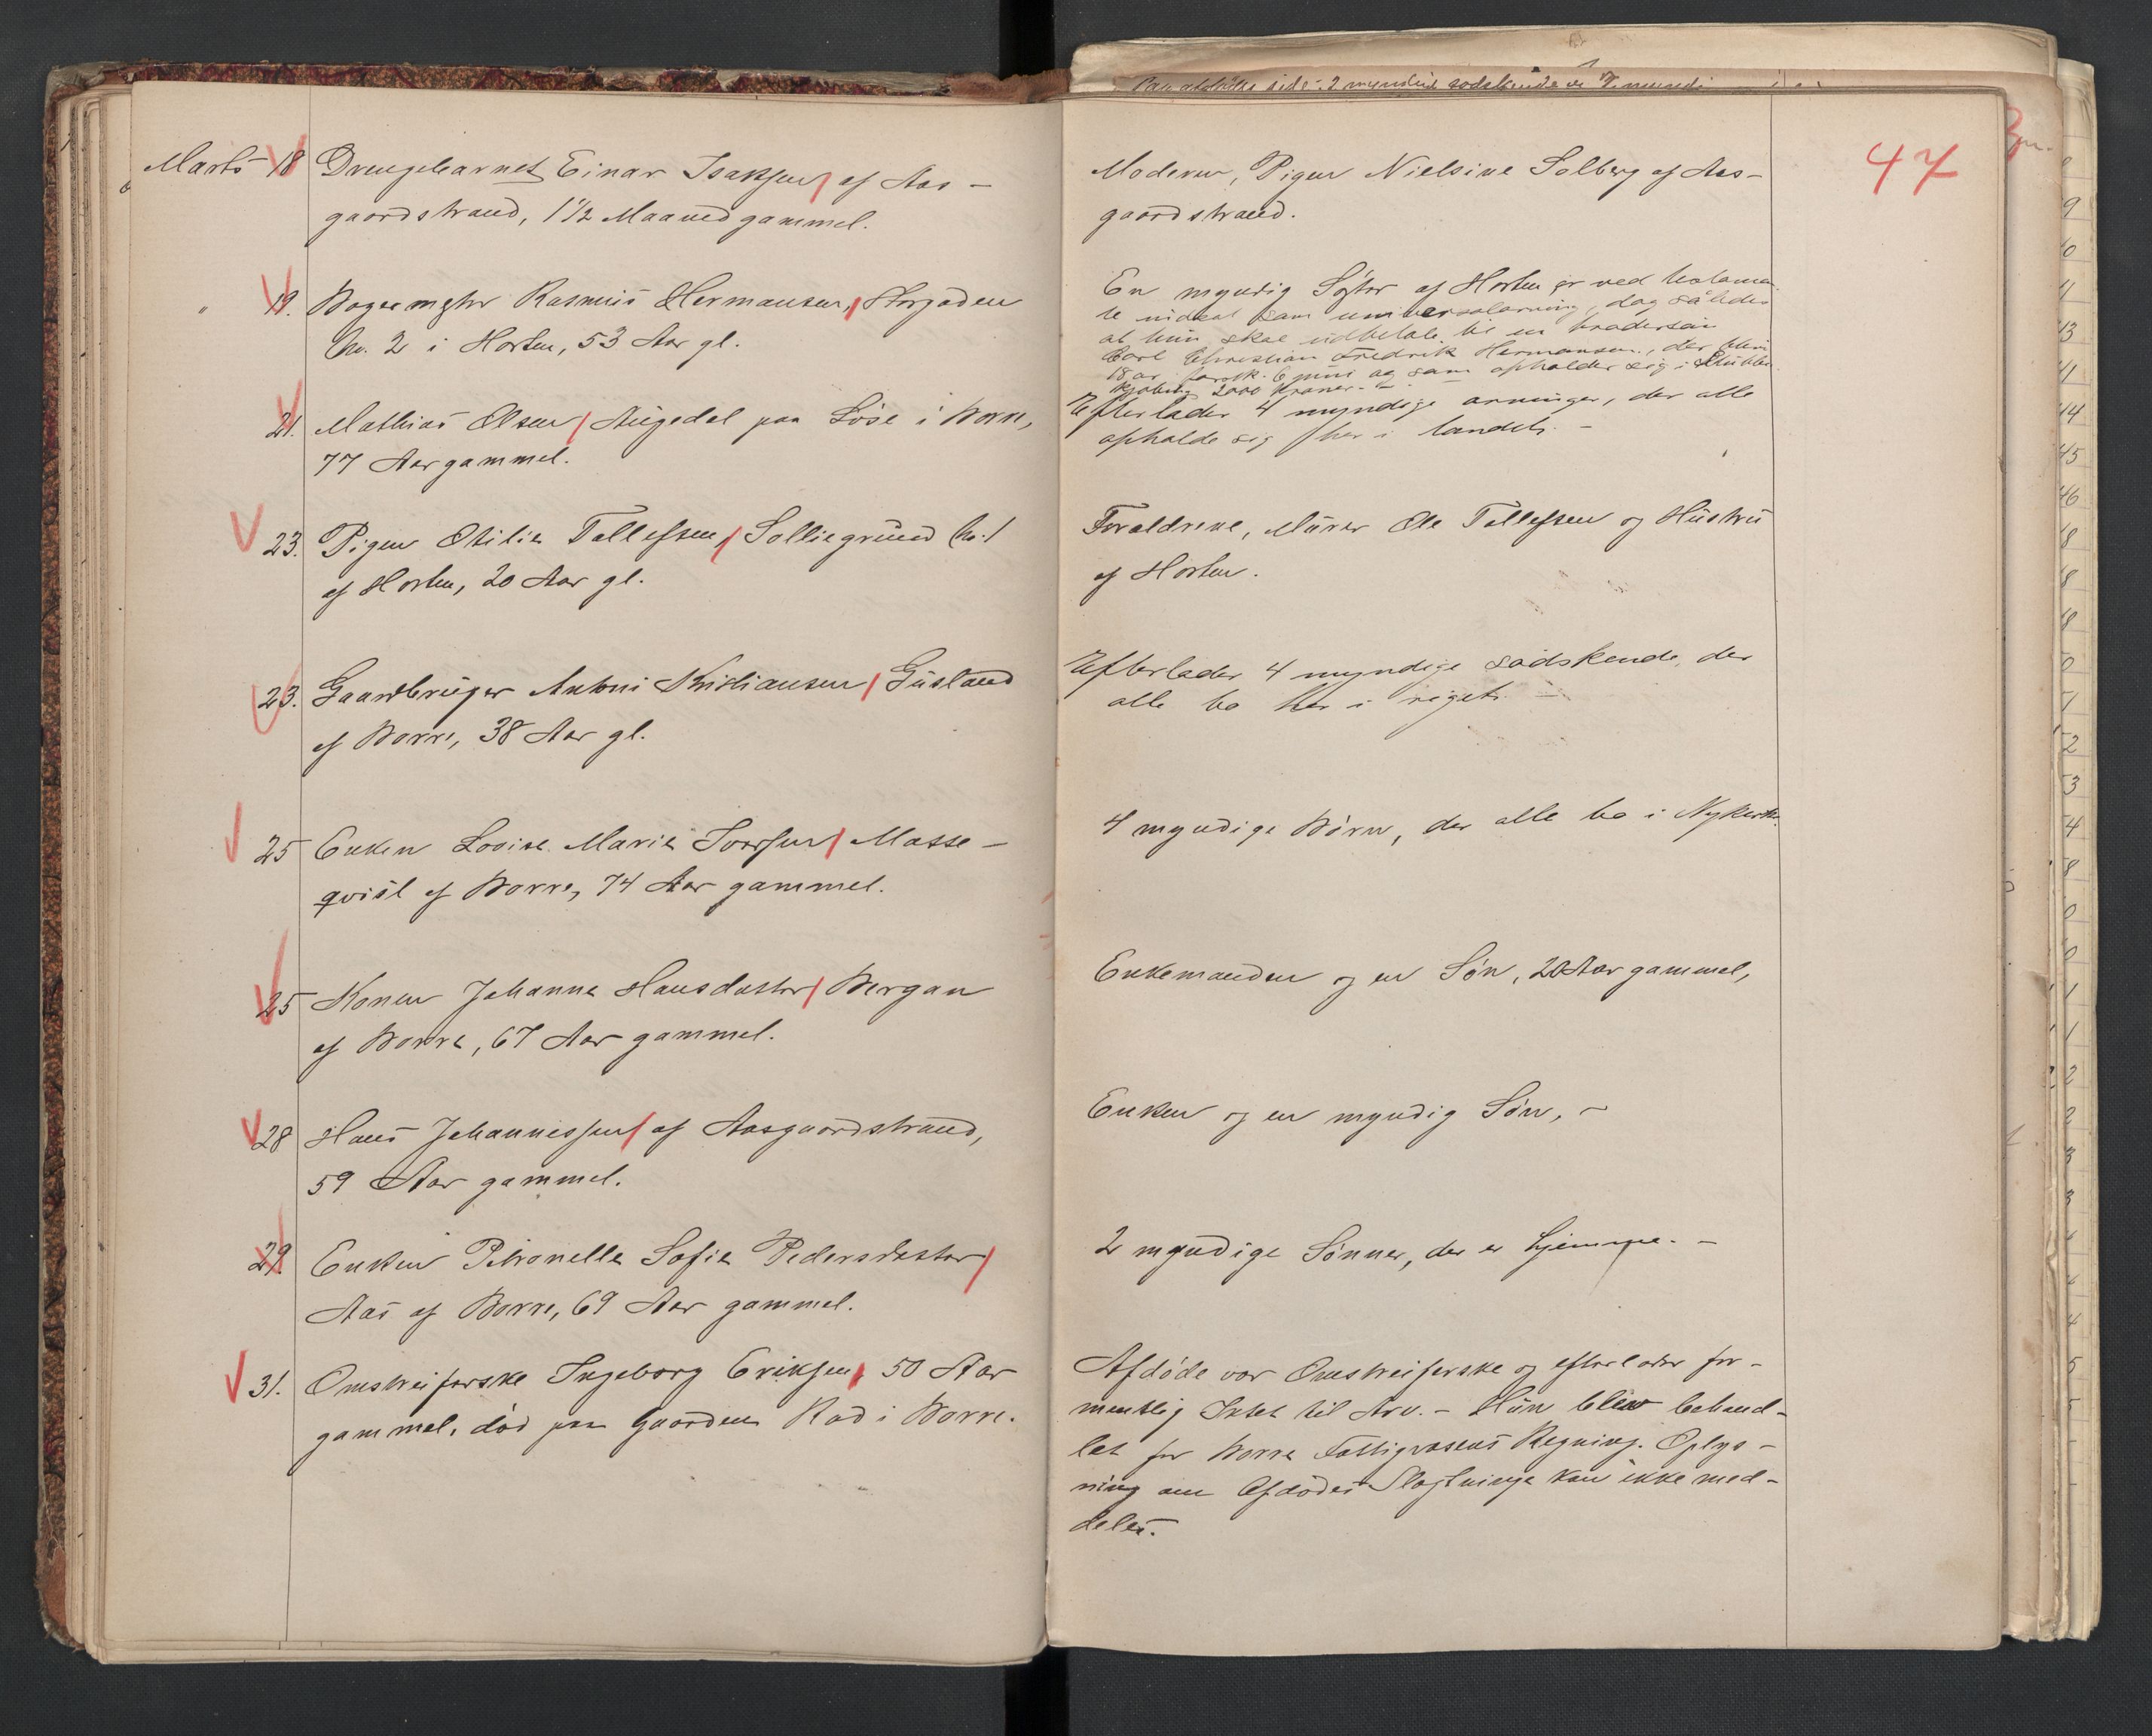 Marts 18 Drengebarnet Einar Isaksen af Aas-
gaardstrand, 1 1/2 Maaned gammel.
" 19. Bagermester Rasmus Hermansen, Storgaden
No. 2 i Horten, 53 Aar gl.
21. Mathias Olsen Augedal paa Löse i Borre,
77 Aar gammel.
23. Pigen Otilie Tollefsen, Solliegrund No. 1
af Horten, 20 Aar gl.
23. Gaardbruger Antoni Kristiansen Gustand
af Borre, 38 Aar gl.
25 Enken Lovise Marie Masse-
qvist af Borre, 74 Aar gammel.
25 Konen Johanne Hansdatter Bergan
af Borre, 67 Aar gammel.
28 Hans Johannessen af Aasgaardstrand,
59 Aar gammel.
29. Enken Petronelle Sofie Pedersdatter
Aas af Borre, 69 Aar gammel.
31. Omstreiferske Ingeborg Eriksen, 50 Aar
gammel, död paa Gaarden Rød i Borre.
47
Moderen, Pigen Nielsine Solberg af Aas-
gaardstrand.
En myndig Søster af Horten er ved testamen-
te indsat som universalarving, dog således
at hun skal udbetale til en brodersøn
Carl Christian Fredrik Hermansen, der blev
18 år forrik. 6 juni og som opholder sig i Stubbe-
kjøbing 2000 Kroner. -
Efterlader 4 myndige arvinger, der alle
opholde sig her i landet. -
Forældrene, Murer Ole Tollefsen og Hustru
af Horten.
Efterlader 4 myndige sødskende, der
alle bo her i riget. -
4 myndige Börn, der alle bo i Nykirke.
Enkemanden og en Søn, 20 Aar gammel,
Enken og en myndig Søn, -
2 myndige Sönner, der er hjemme. -
Afdöde var Omstreiferske og efterlader for-
mentlig Intet til Arv. - Hun blev behand-
let for Borre Fattigvæsens Regning. Oplys-
ning om Afdödes Slægtninge kan ikke med-
deles.